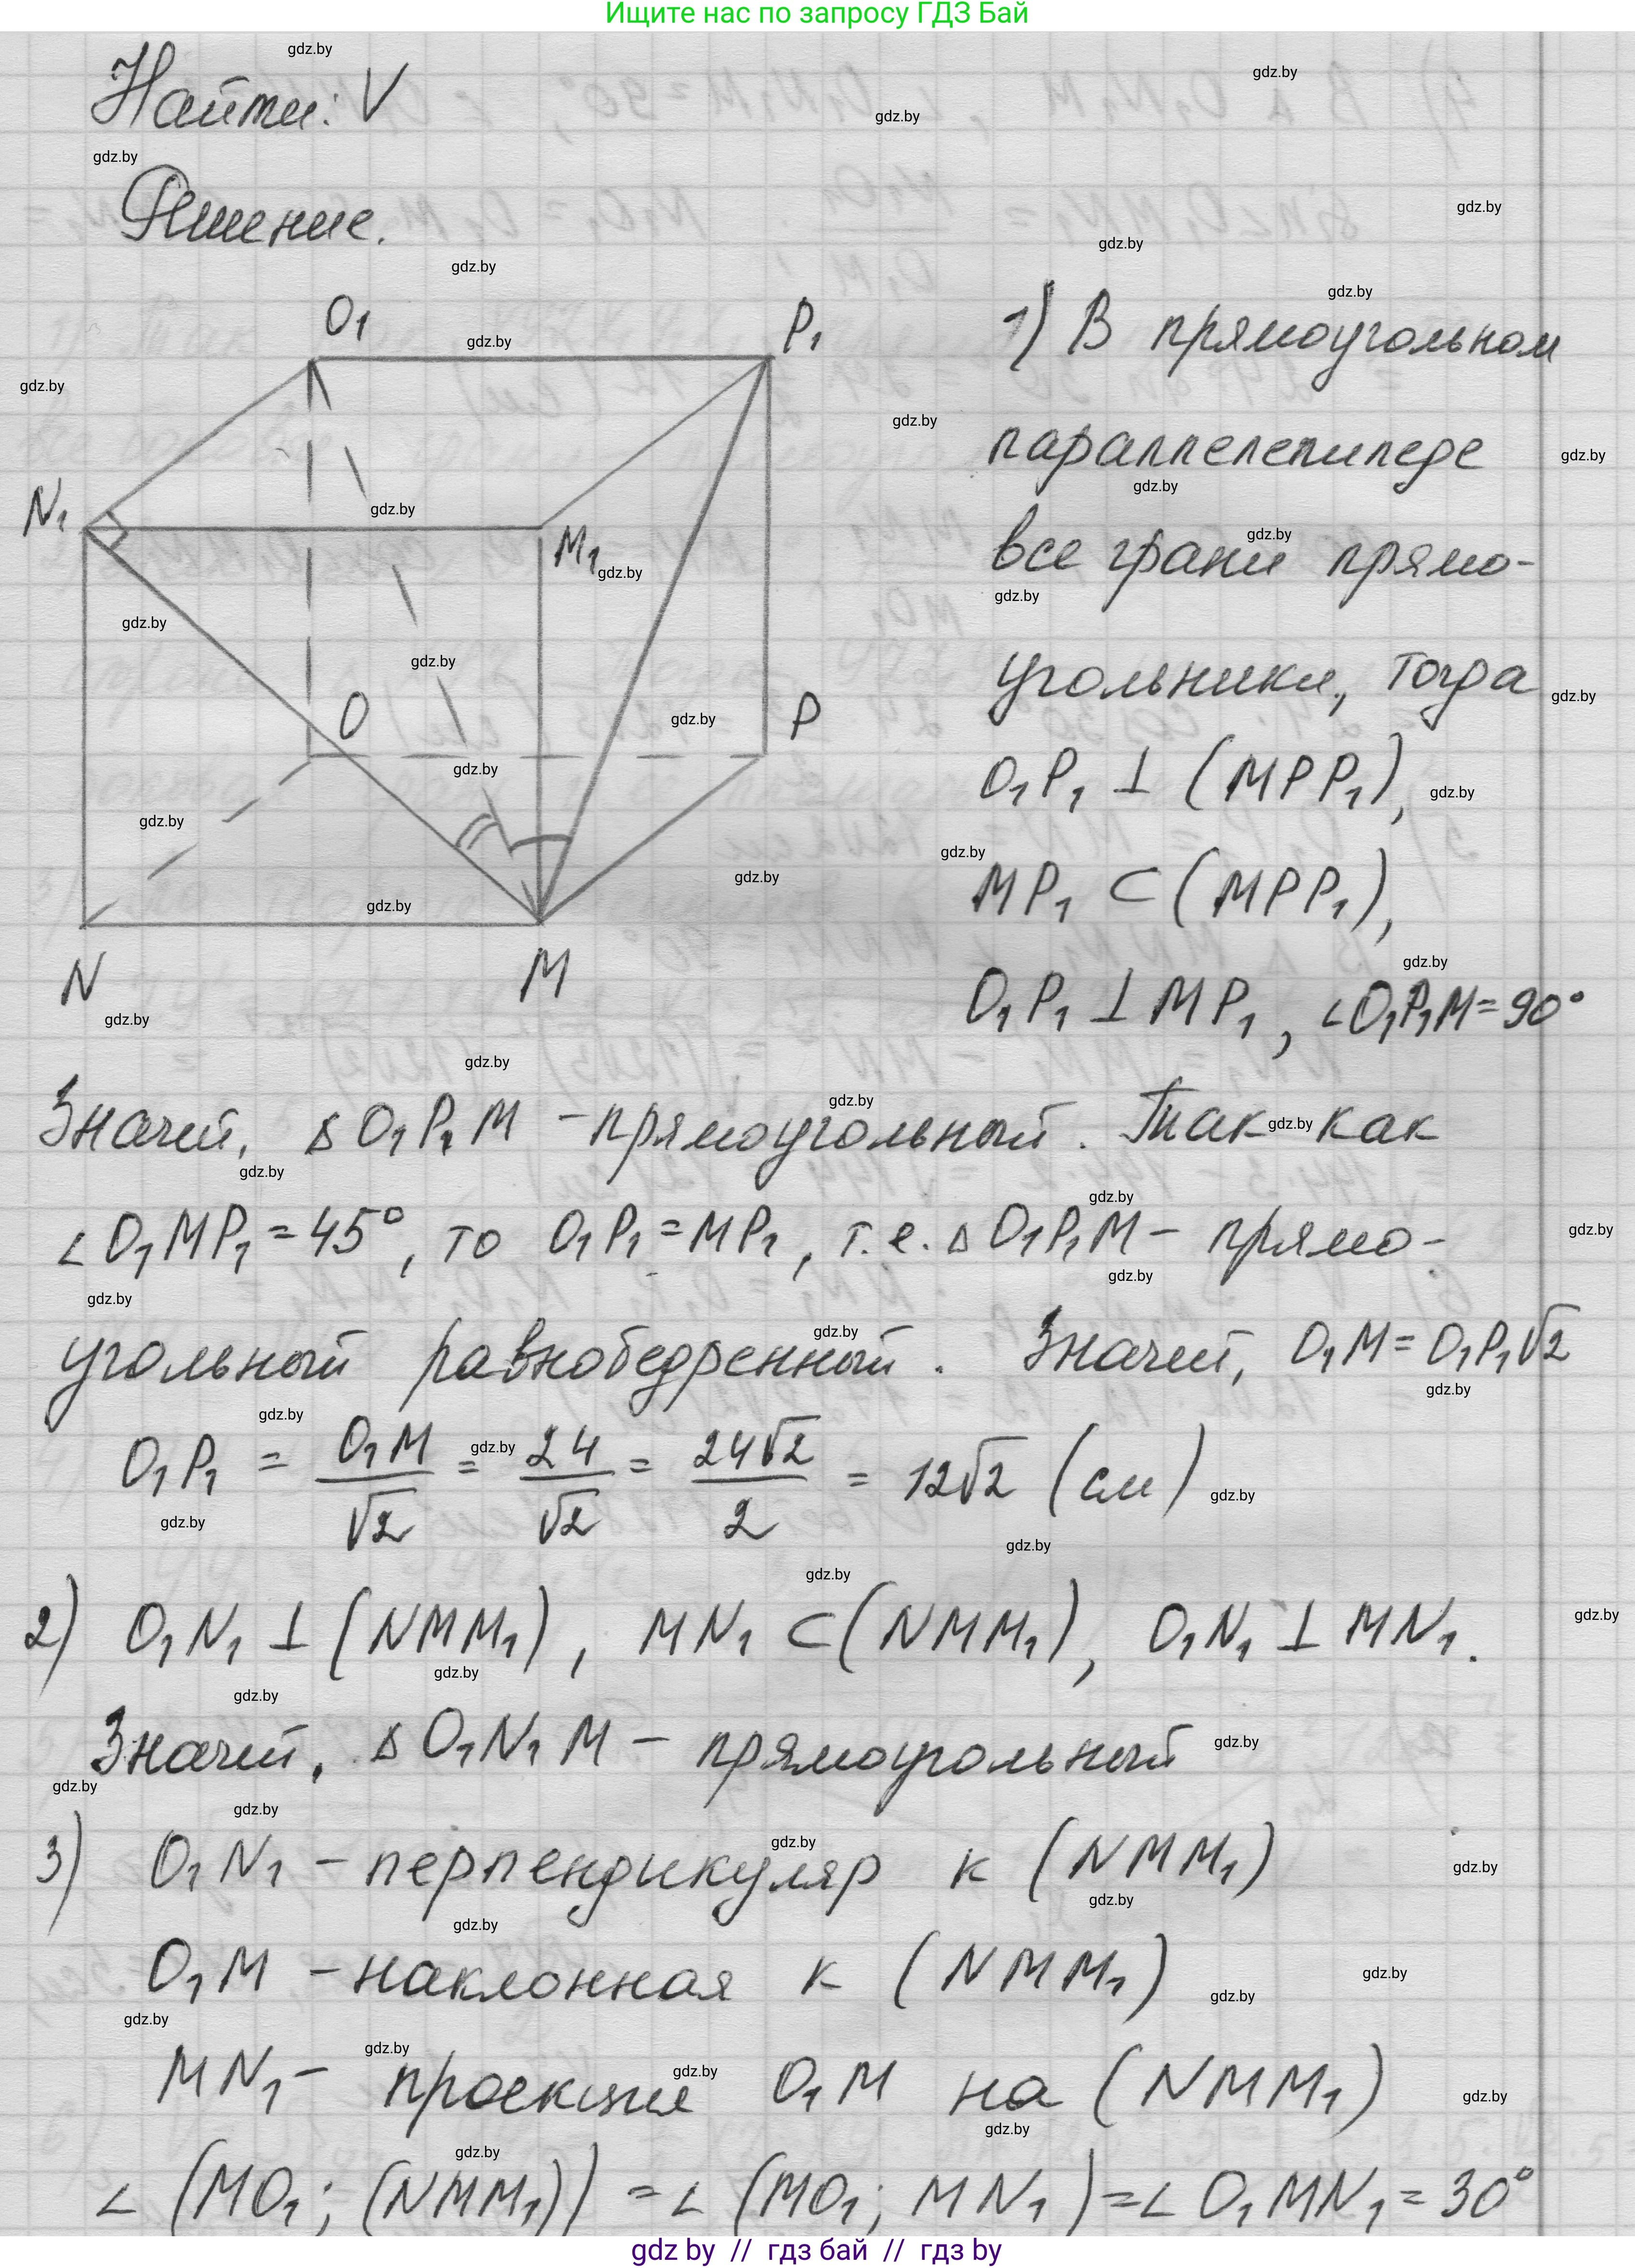 Ищите нас по запросу ГДЗ Бай
Найти: V
Решение.
O₁
P₁
N₁
M₁
O
P
N
M
1) В прямоугольном
параллелепипеде
все грани прямо-
угольники, тогда
O₁P₁ ⊥ (MPP₁),
MP₁ ⊂ (MPP₁),
O₁P₁ ⊥ MP₁, ∠O₁P₁M = 90°
Значит, Δ O₁P₁M - прямоугольный. Так как
∠O₁MP₁ = 45°, то O₁P₁ = MP₁, т.е. Δ O₁P₁M - прямо-
угольный равнобедренный. Значит, O₁M = O₁P₁√2
O₁P₁ = O₁M/√2 = 24/√2 = 24√2/2 = 12√2 (см)
2) O₁N₁ ⊥ (NMM₁), MN₁ ⊂ (NMM₁), O₁N₁ ⊥ MN₁.
Значит, Δ O₁N₁M - прямоугольный
3) O₁N₁ - перпендикуляр к (NMM₁)
O₁M - наклонная к (NMM₁)
MN₁ - проекция O₁M на (NMM₁)
∠ (MO₁; (NMM₁)) = ∠ (MO₁; MN₁) = ∠ O₁MN₁ = 30°
gdz by // гдз бай // гдз by